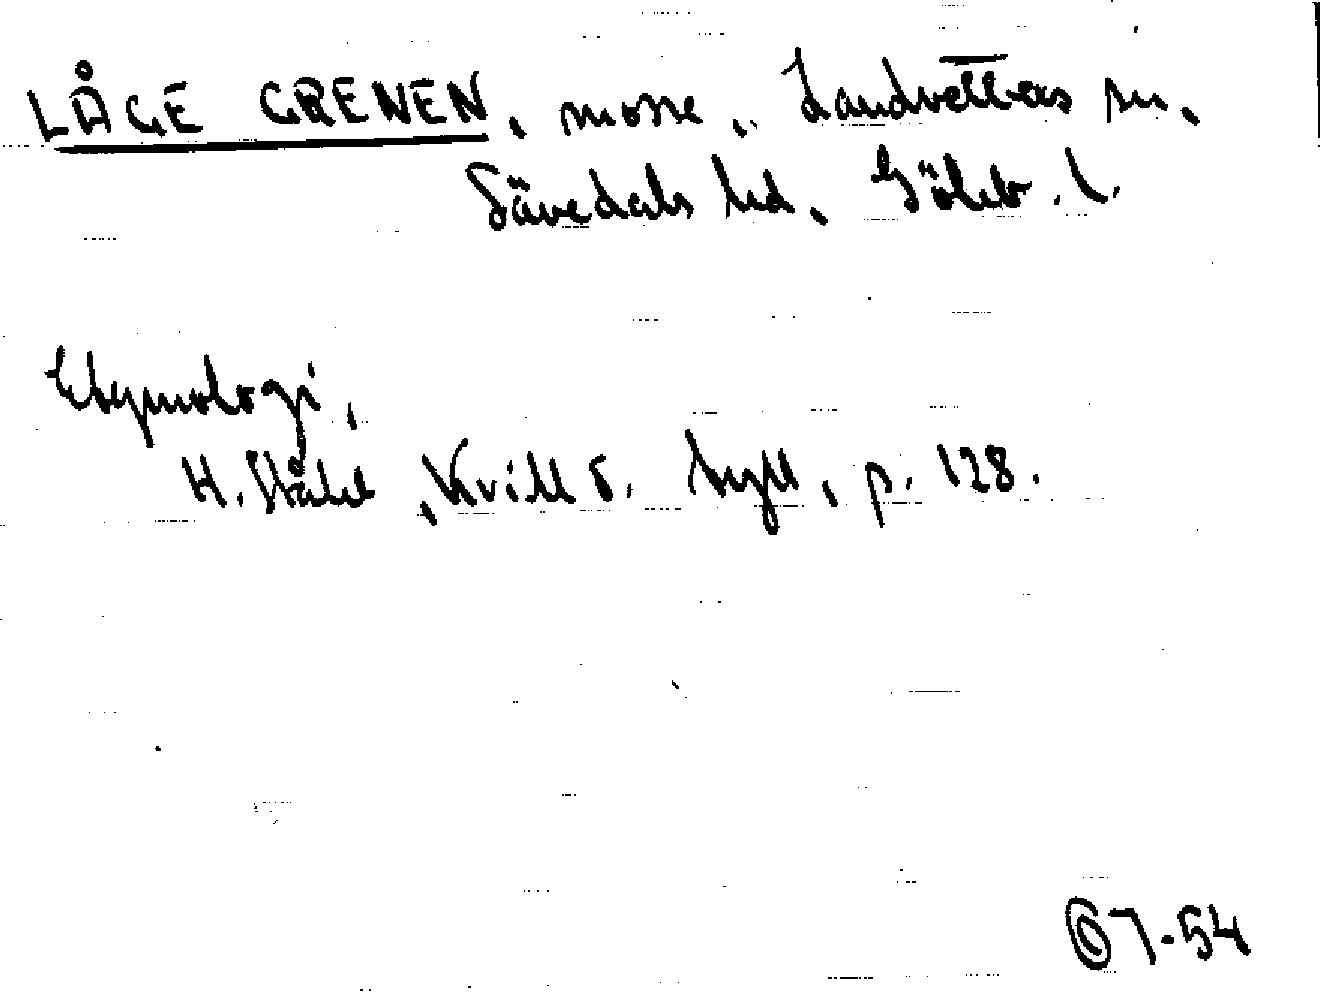 LÅGE GRENEN, mosse, Landvetters sn,
Sävedals hd, Göteb. l.
Etymologi,
H. Ståhl, Kvill o. tyll, p. 128.
67-54